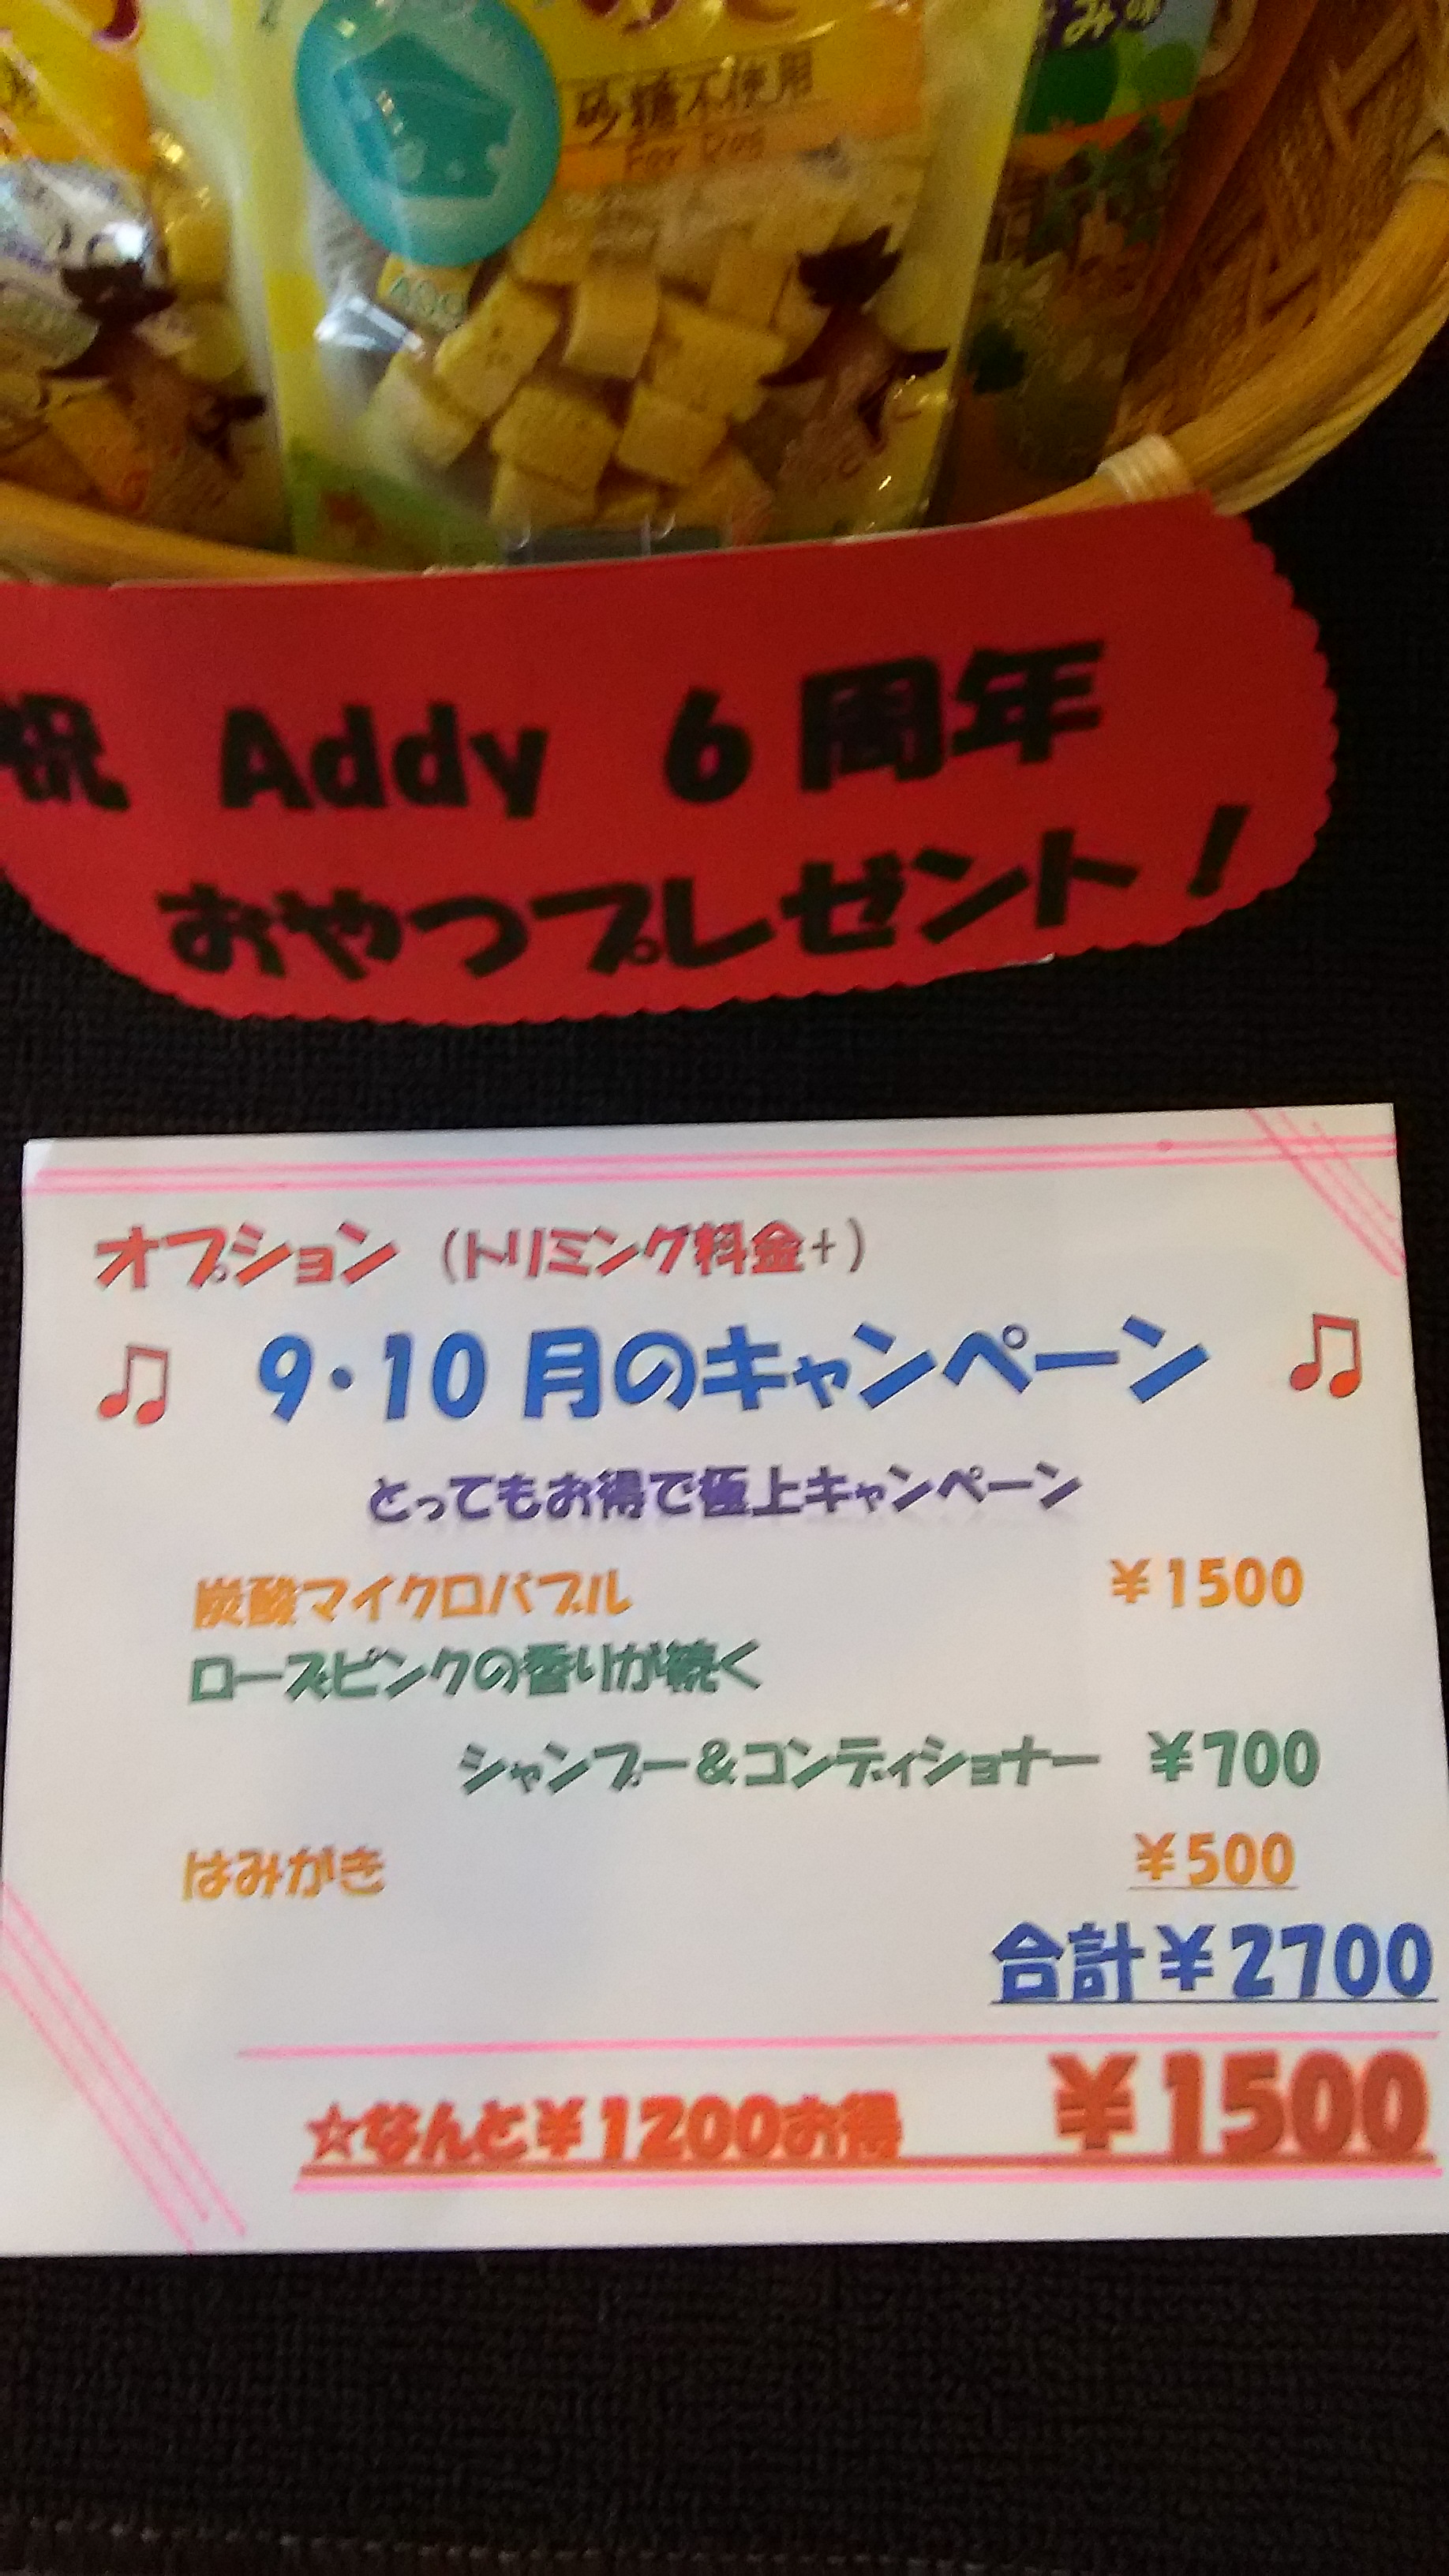 砂糖不使用
For Dog
40g
み味
祝 Addy 6周年
おやつプレゼント！
オプション（トリミング料金+）
♫ 9・10月のキャンペーン ♫
とってもお得で極上キャンペーン
炭酸マイクロバブル ￥1500
ローズピンクの香りが続く
シャンプー＆コンディショナー ￥700
はみがき ￥500
合計￥2700
☆なんと￥1200お得 ￥1500